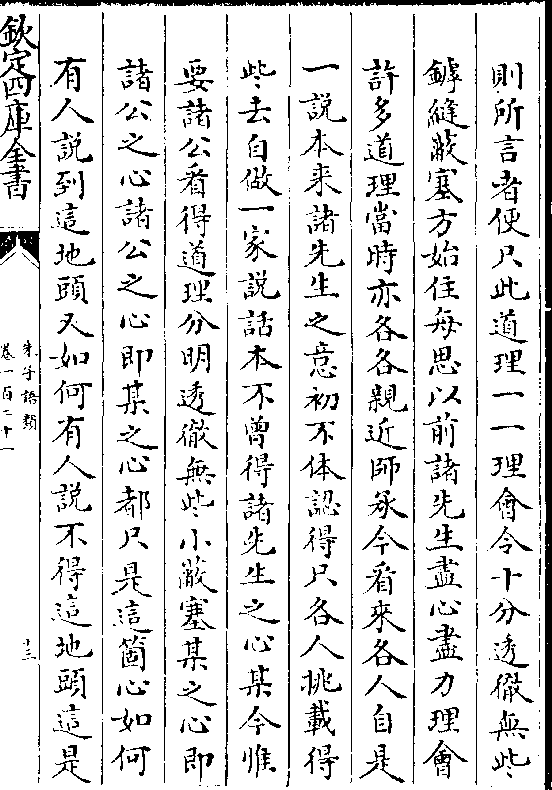 則所言者便只此道理一一理會令十分透徹無些
罅縫蔽塞方始住每思以前諸先生盡心盡力理會
許多道理當時亦各各親近師承今看來各人自是
一說本来諸先生之意初不体認得只各人挑載得
些去自做一家說話本不曾得諸先生之心某今惟
要諸公看得道理分明透徹無些小蔽塞某之心即
諸公之心諸公之心即某之心都只是這箇心如何
有人說到這地頭又如何有人說不得這地頭這是
欽定四庫全書
朱子語類
卷一百二十一
十三